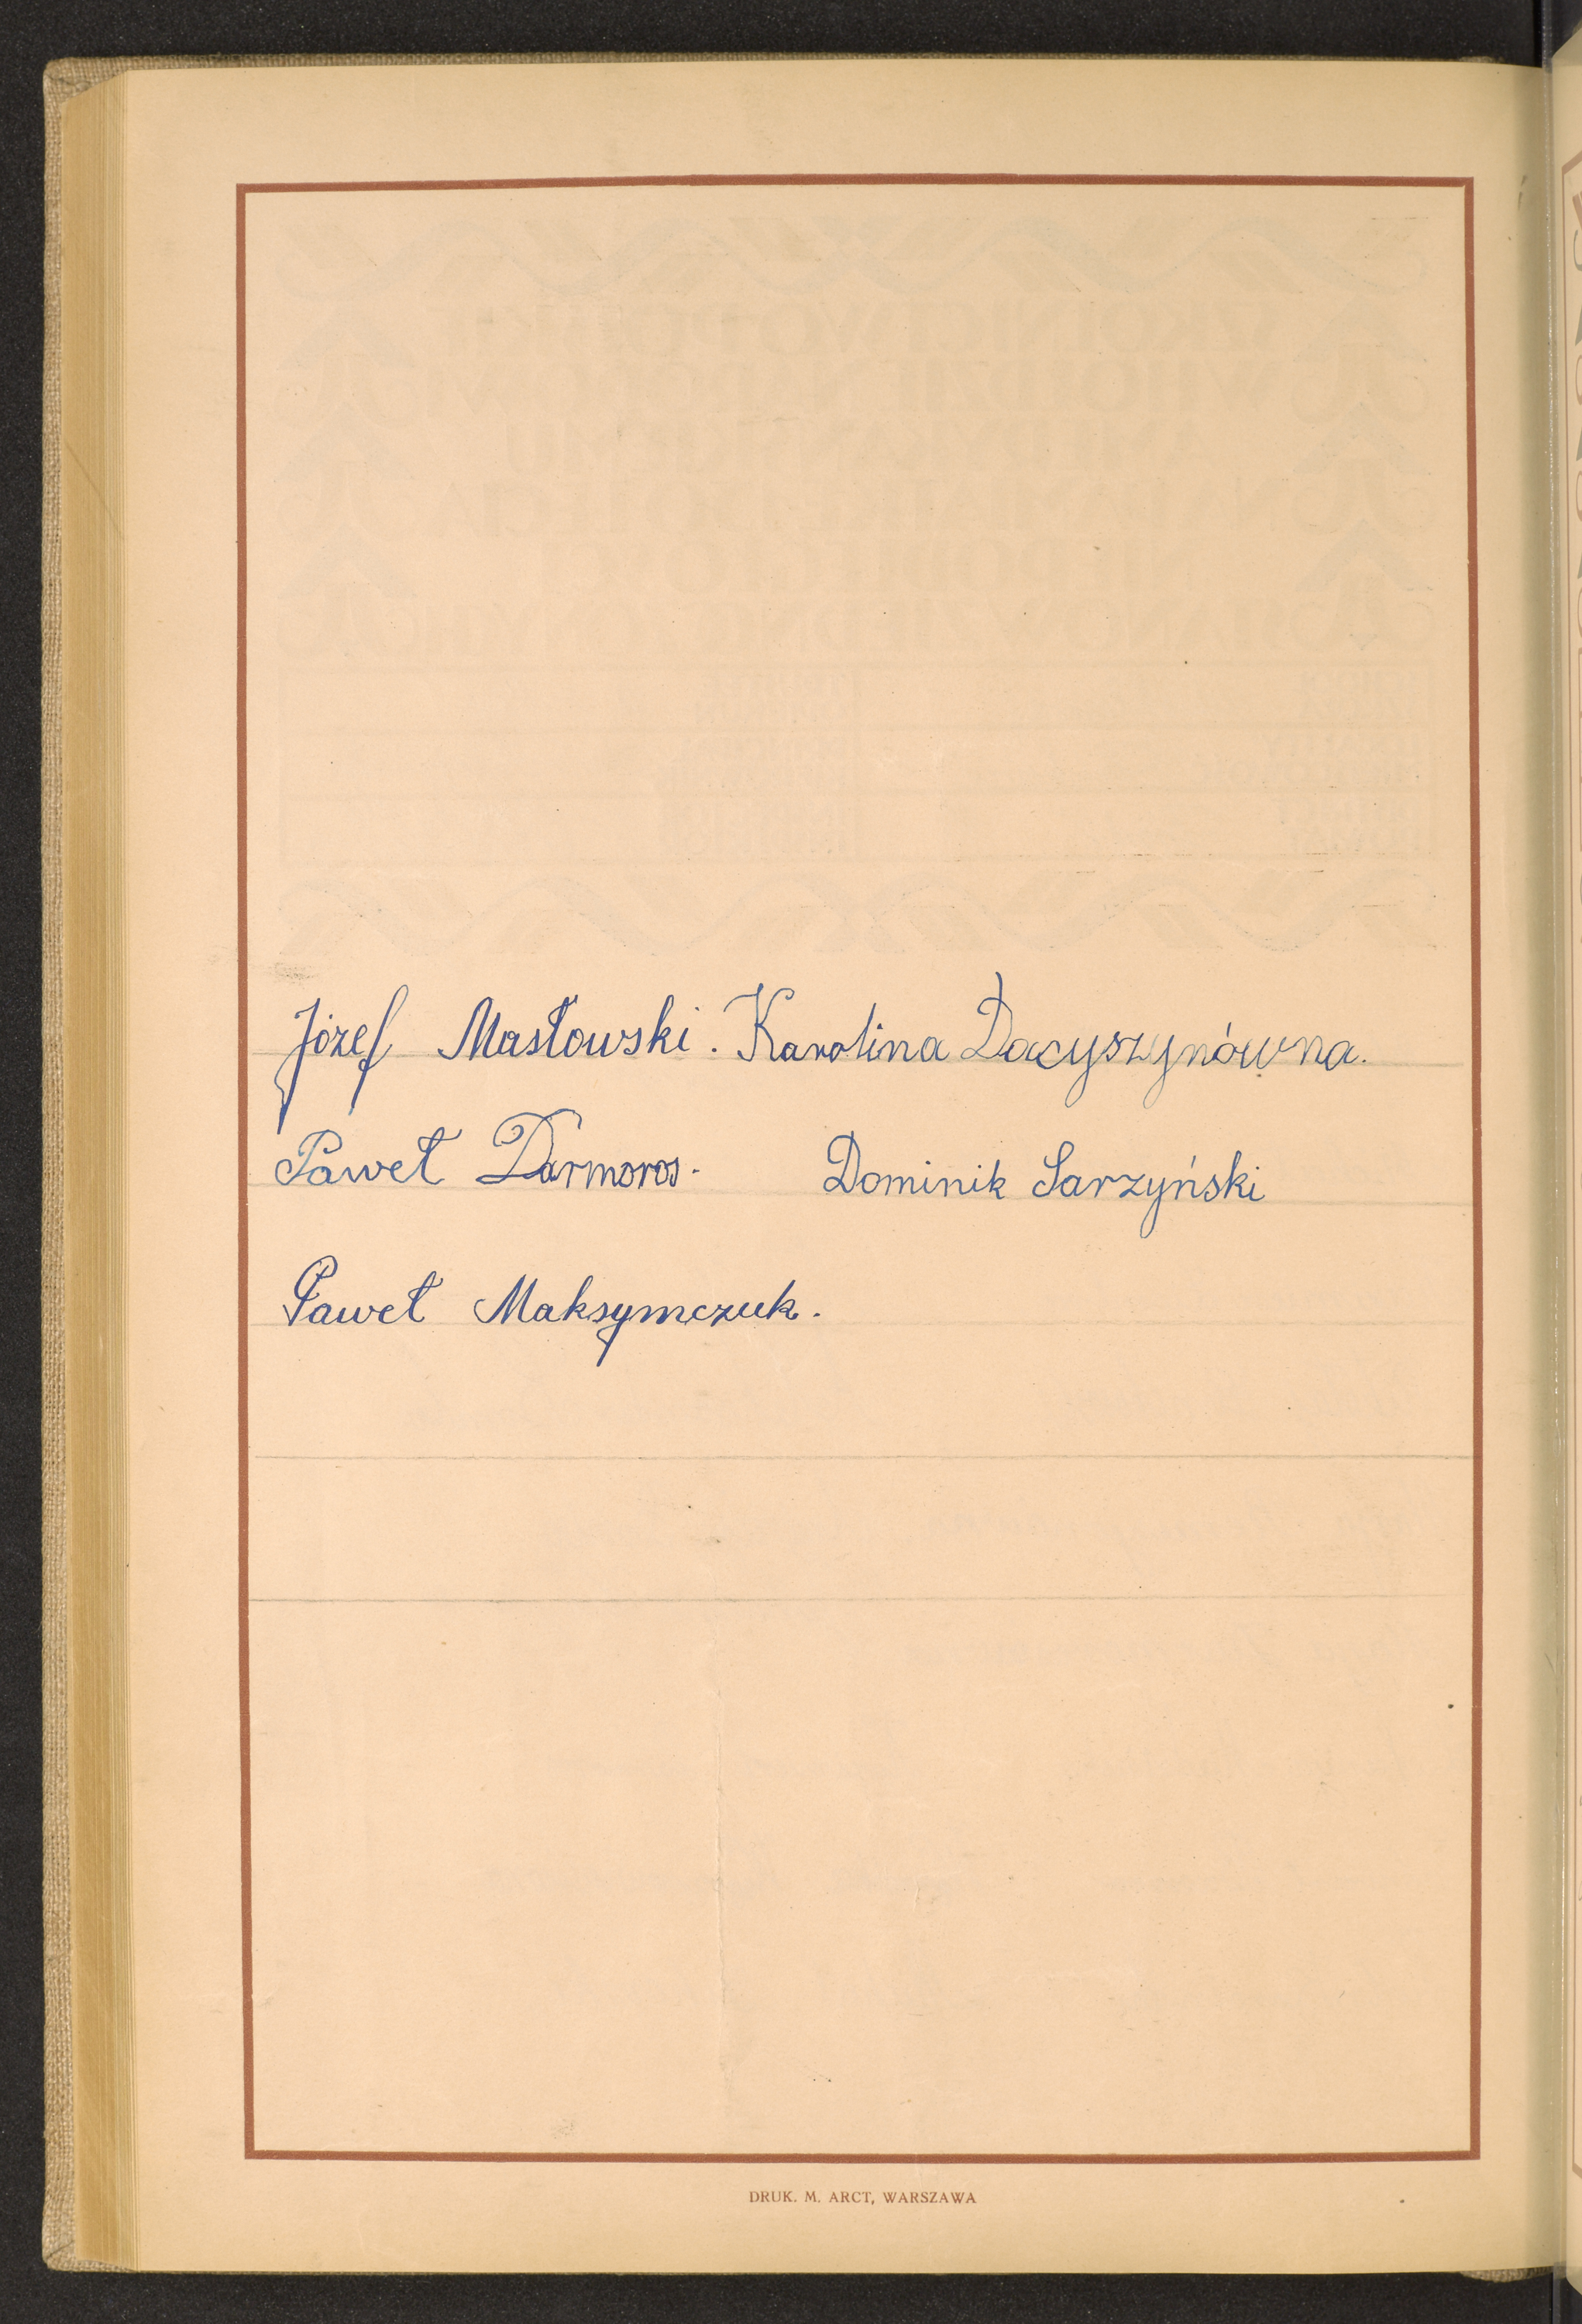 Józef Masłowski. Karolina Dacyszynówna.
Paweł Darmoros. Dominik Sarzyński
Paweł Maksymczuk.
DRUK. M. ARCT, WARSZAWA